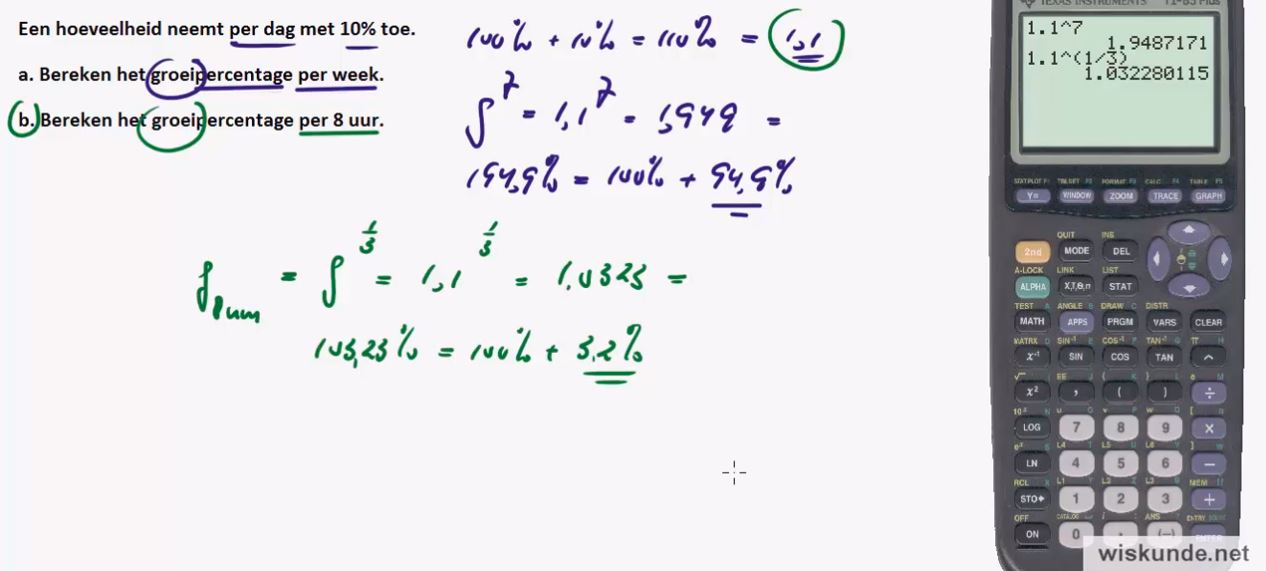 Een hoeveelheid neemt per dag met 10% toe.
a. Bereken het groeipercentage per week.
b. Bereken het groeipercentage per 8 uur.
100% + 10% = 110% = 1,1
g^7 = 1,1^7 = 1,949 =
194,9% = 100% + 94,9%
g 8 uur = g^1/3 = 1,1^1/3 = 1,0323 =
103,23% = 100% + 3,2%
TEXAS INSTRUMENTS TI-83 Plus
1.1^7
1.9487171
1.1^(1/3)
1.032280115
STATPLOT F1 TBLSET F2 FORMAT F3 CALC F4 TABLE F5
Y= WINDOW ZOOM TRACE GRAPH
QUIT INS
2nd MODE DEL
A-LOCK LINK LIST
ALPHA X,T,θ,n STAT
TEST A ANGLE B DRAW C DISTR
MATH APPS PRGM VARS CLEAR
MATRX D SIN-1 E COS-1 F TAN-1 G π H
X-1 SIN COS TAN ^
√ I EE J { K } L e M
X² , ( ) ÷
10^x N u O v P w Q [ R
LOG 7 8 9 ×
e^x S L4 T L5 U L6 V ] W
LN 4 5 6 −
RCL X L1 Y L2 Z L3 θ MEM "
STO 1 2 3 +
OFF CATALOG i : ANS ? ENTRY SOLVE
ON 0 . (−) ENTER
wiskunde.net